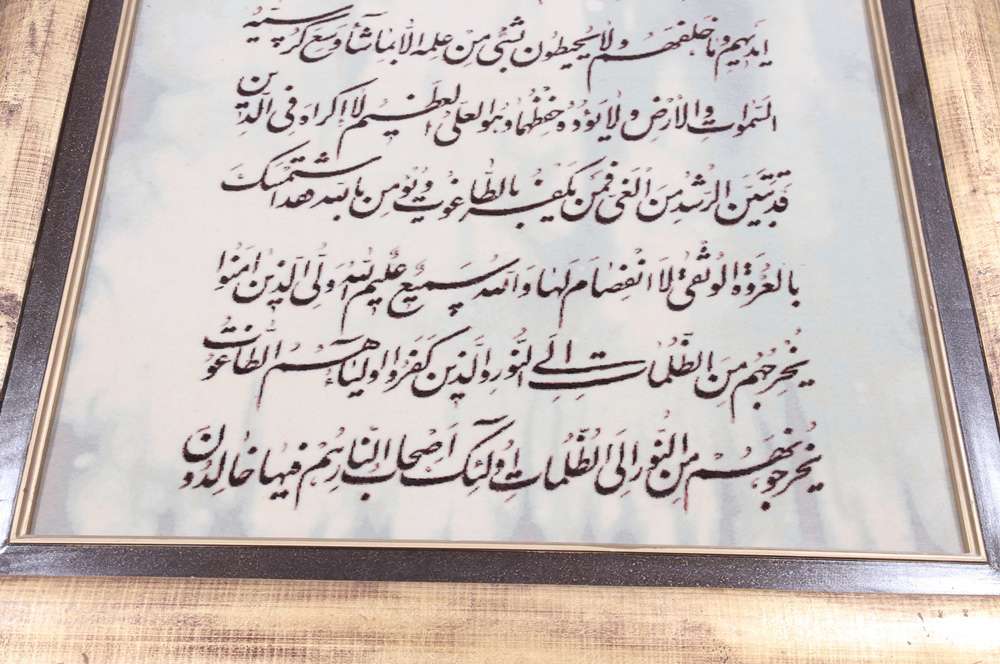 ايديهم وما خلفهم ولا يحيطون بشئ من علمه الا بما شاء وسع كرسيه
السموات والارض ولا يؤده حفظهما وهو العلى العظيم لا إكراه فى الدين
قد تبين الرشد من الغى فمن يكفر بالطاغوت ويؤمن بالله فقد استمسك
بالعروة الوثقى لا انفصام لها والله سميع عليم الله ولى الذين امنوا
يخرجهم من الظلمات الى النور والذين كفروا اولياءهم الطاغوت
يخرجونهم من النور الى الظلمات اولئك اصحاب النار هم فيها خالدون